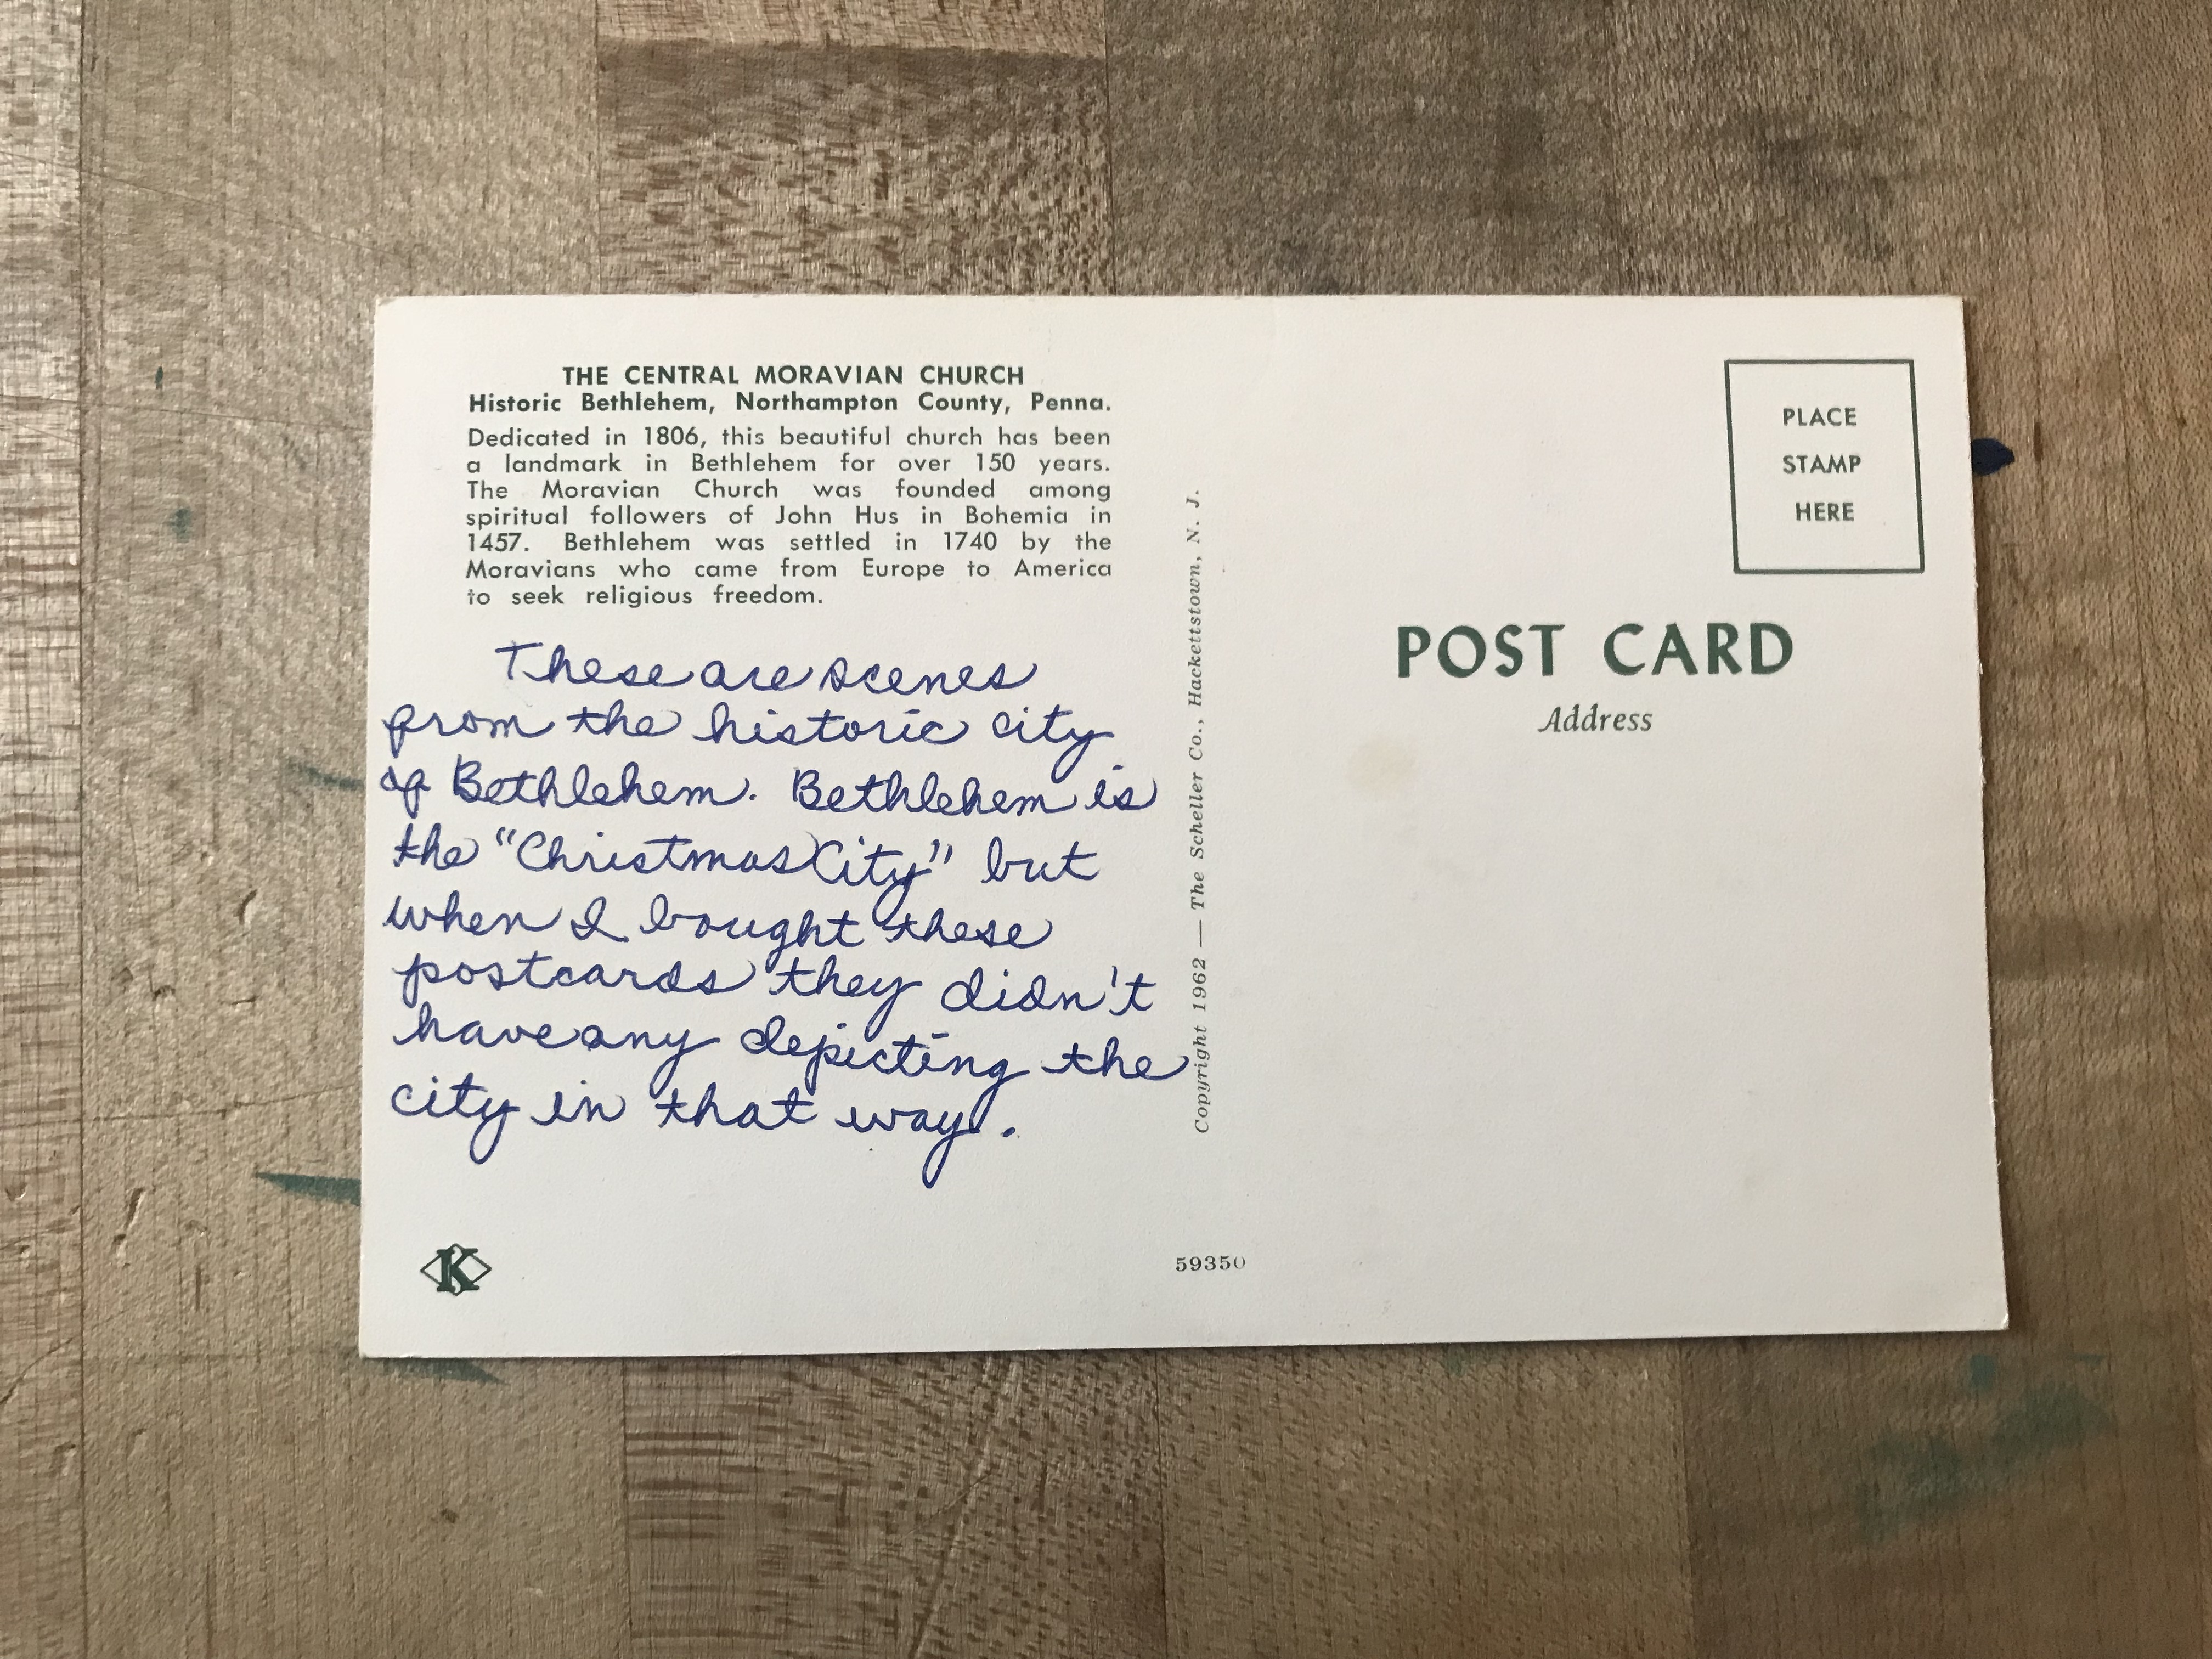 THE CENTRAL MORAVIAN CHURCH
Historic Bethlehem, Northampton County, Penna.
Dedicated in 1806, this beautiful church has been
a landmark in Bethlehem for over 150 years.
The Moravian Church was founded among
spiritual followers of John Hus in Bohemia in
1457. Bethlehem was settled in 1740 by the
Moravians who came from Europe to America
to seek religious freedom.
These are scenes
from the historic city
of Bethlehem. Bethlehem is
the "Christmas City" but
when I bought these
postcards they didn't
have any depicting the
city in that way.
K
Copyright 1962 — The Scheller Co., Hackettstown, N. J.
59350
PLACE
STAMP
HERE
POST CARD
Address